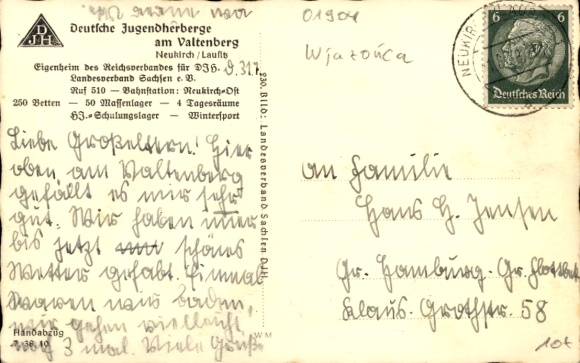 von eurem
01904
Wjazońca
DJH
Deutsche Jugendherberge
am Valtenberg
Neukirch / Lausitz
Eigenheim des Reichsverbandes für DJH.
Landesverband Sachsen e. V.
Ruf 510 — Bahnstation: Neukirch-Ost
250 Betten — 50 Massenlager — 4 Tagesräume
HJ.-Schulungslager — Wintersport
D. 31.7.
Liebe Großeltern! Hier
oben, am Valtenberg
gefällt es mir sehr
gut. Wir haben immer
bis jetzt schönes
Wetter gehabt. Einmal
waren wir baden,
wir gehen vielleicht
noch 3 mal. Viele Grüße
Handabzug
7. 38. 10
WM
230. Bild: Landesverband Sachsen DJH.
NEUKIRCH
6 6
Deutsches Reich
An Familie
Hans H. Jensen
Gr. Hamburg-Gr. Flottbek
Klaus-Grothstr. 58
10t